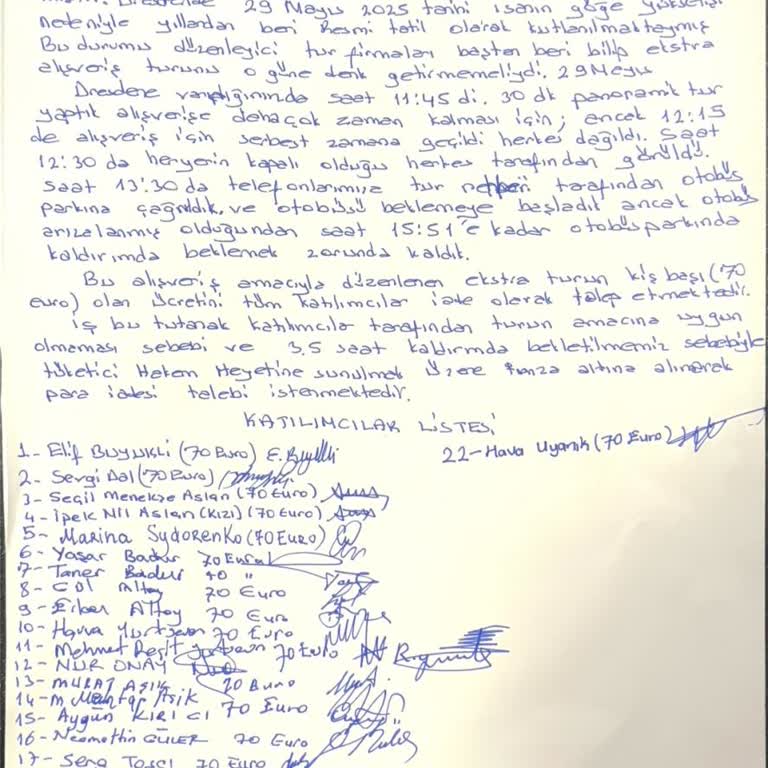 Dresdende 29 Mayıs 2025 tarihi isanın göğe yükselişi
nedeniyle yıllardan beri Resmi tatil olarak kutlanılmaktaymış
Bu durumu düzenleyici tur firmaları baştan beri bilip ekstra
alışveriş turunu o güne denk getirmemeliydi. 29 Mayıs
Dresdene varıldığınında saat 11:45 di. 30 dk panoramik tur
yaptık alışverişe daha çok zaman kalması için; ancak 12:15
de alışveriş için serbest zamana geçildi herkes dağıldı. Saat
12:30 da heryerin kapalı olduğu herkes tarafından görüldü.
saat 13:30 da telefonlarımıza tur rehberi tarafından otobüs
parkına çağrıldık. ve otobüsü beklemeye başladık ancak otobüs
arızalanmış olduğundan saat 15:51'e kadar otobüs parkında
kaldırımda beklemek zorunda kaldık.
Bu alışveriş amacıyla düzenlenen ekstra turun kişi başı (70
euro) olan ücretini tüm katılımcılar iade olarak talep etmektedir.
iş bu tutanak katılımcılar tarafından turun amacına uygun
olmaması sebebi ve 3,5 saat kaldırımda bekletilmemiz sebebiyle
tüketici Hakem Heyetine sunulmak üzere imza altına alınarak
para iadesi talebi istenmektedir.
KATILIMCILAR LİSTESİ
1- Elif BUYUKLI (70 Euro) E. Buyukli
22- Hava Uyanık (70 Euro)
2- Sevgi Dal (70 Euro)
3- Seçil Menekşe Aslan (70 Euro)
4- İpek Nil Aslan (Kızı) (70 Euro)
5- Marina Sydorenko (70 Euro)
6- Yaşar Badur 70 Euro
7- Taner Badur 70 "
8- Altay 70 Euro
9- Erkan Altay 70 Euro
10- Hava Yurtseven 70 Euro
11- Mehmet Reşit Yurtseven 70 Euro
12- NUR ONAY
13- MURAT AŞIK 70 Euro
14- M Aşık
15- Aygün KIRICI 70 Euro
16- Necmettin GÜLER 70 Euro
17- Taşcı 70 Euro